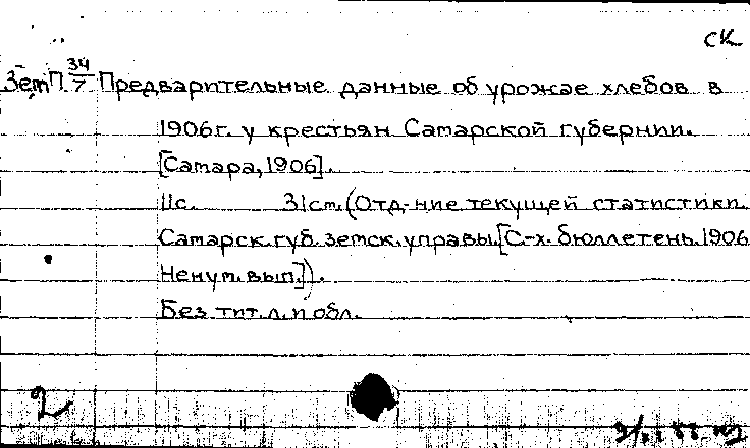 СК
Зем П 34/7 Предварительные данные об урожае хлебов в
1906 г. у крестьян Самарской губернии.
[Самара, 1906].
11с. 31см. (Отд-ние текущей статистики
Самарск. губ. земск. управы. [С-х. бюллетень. 1906
Ненум. вып.]).
Без тит. л. и обл.
2